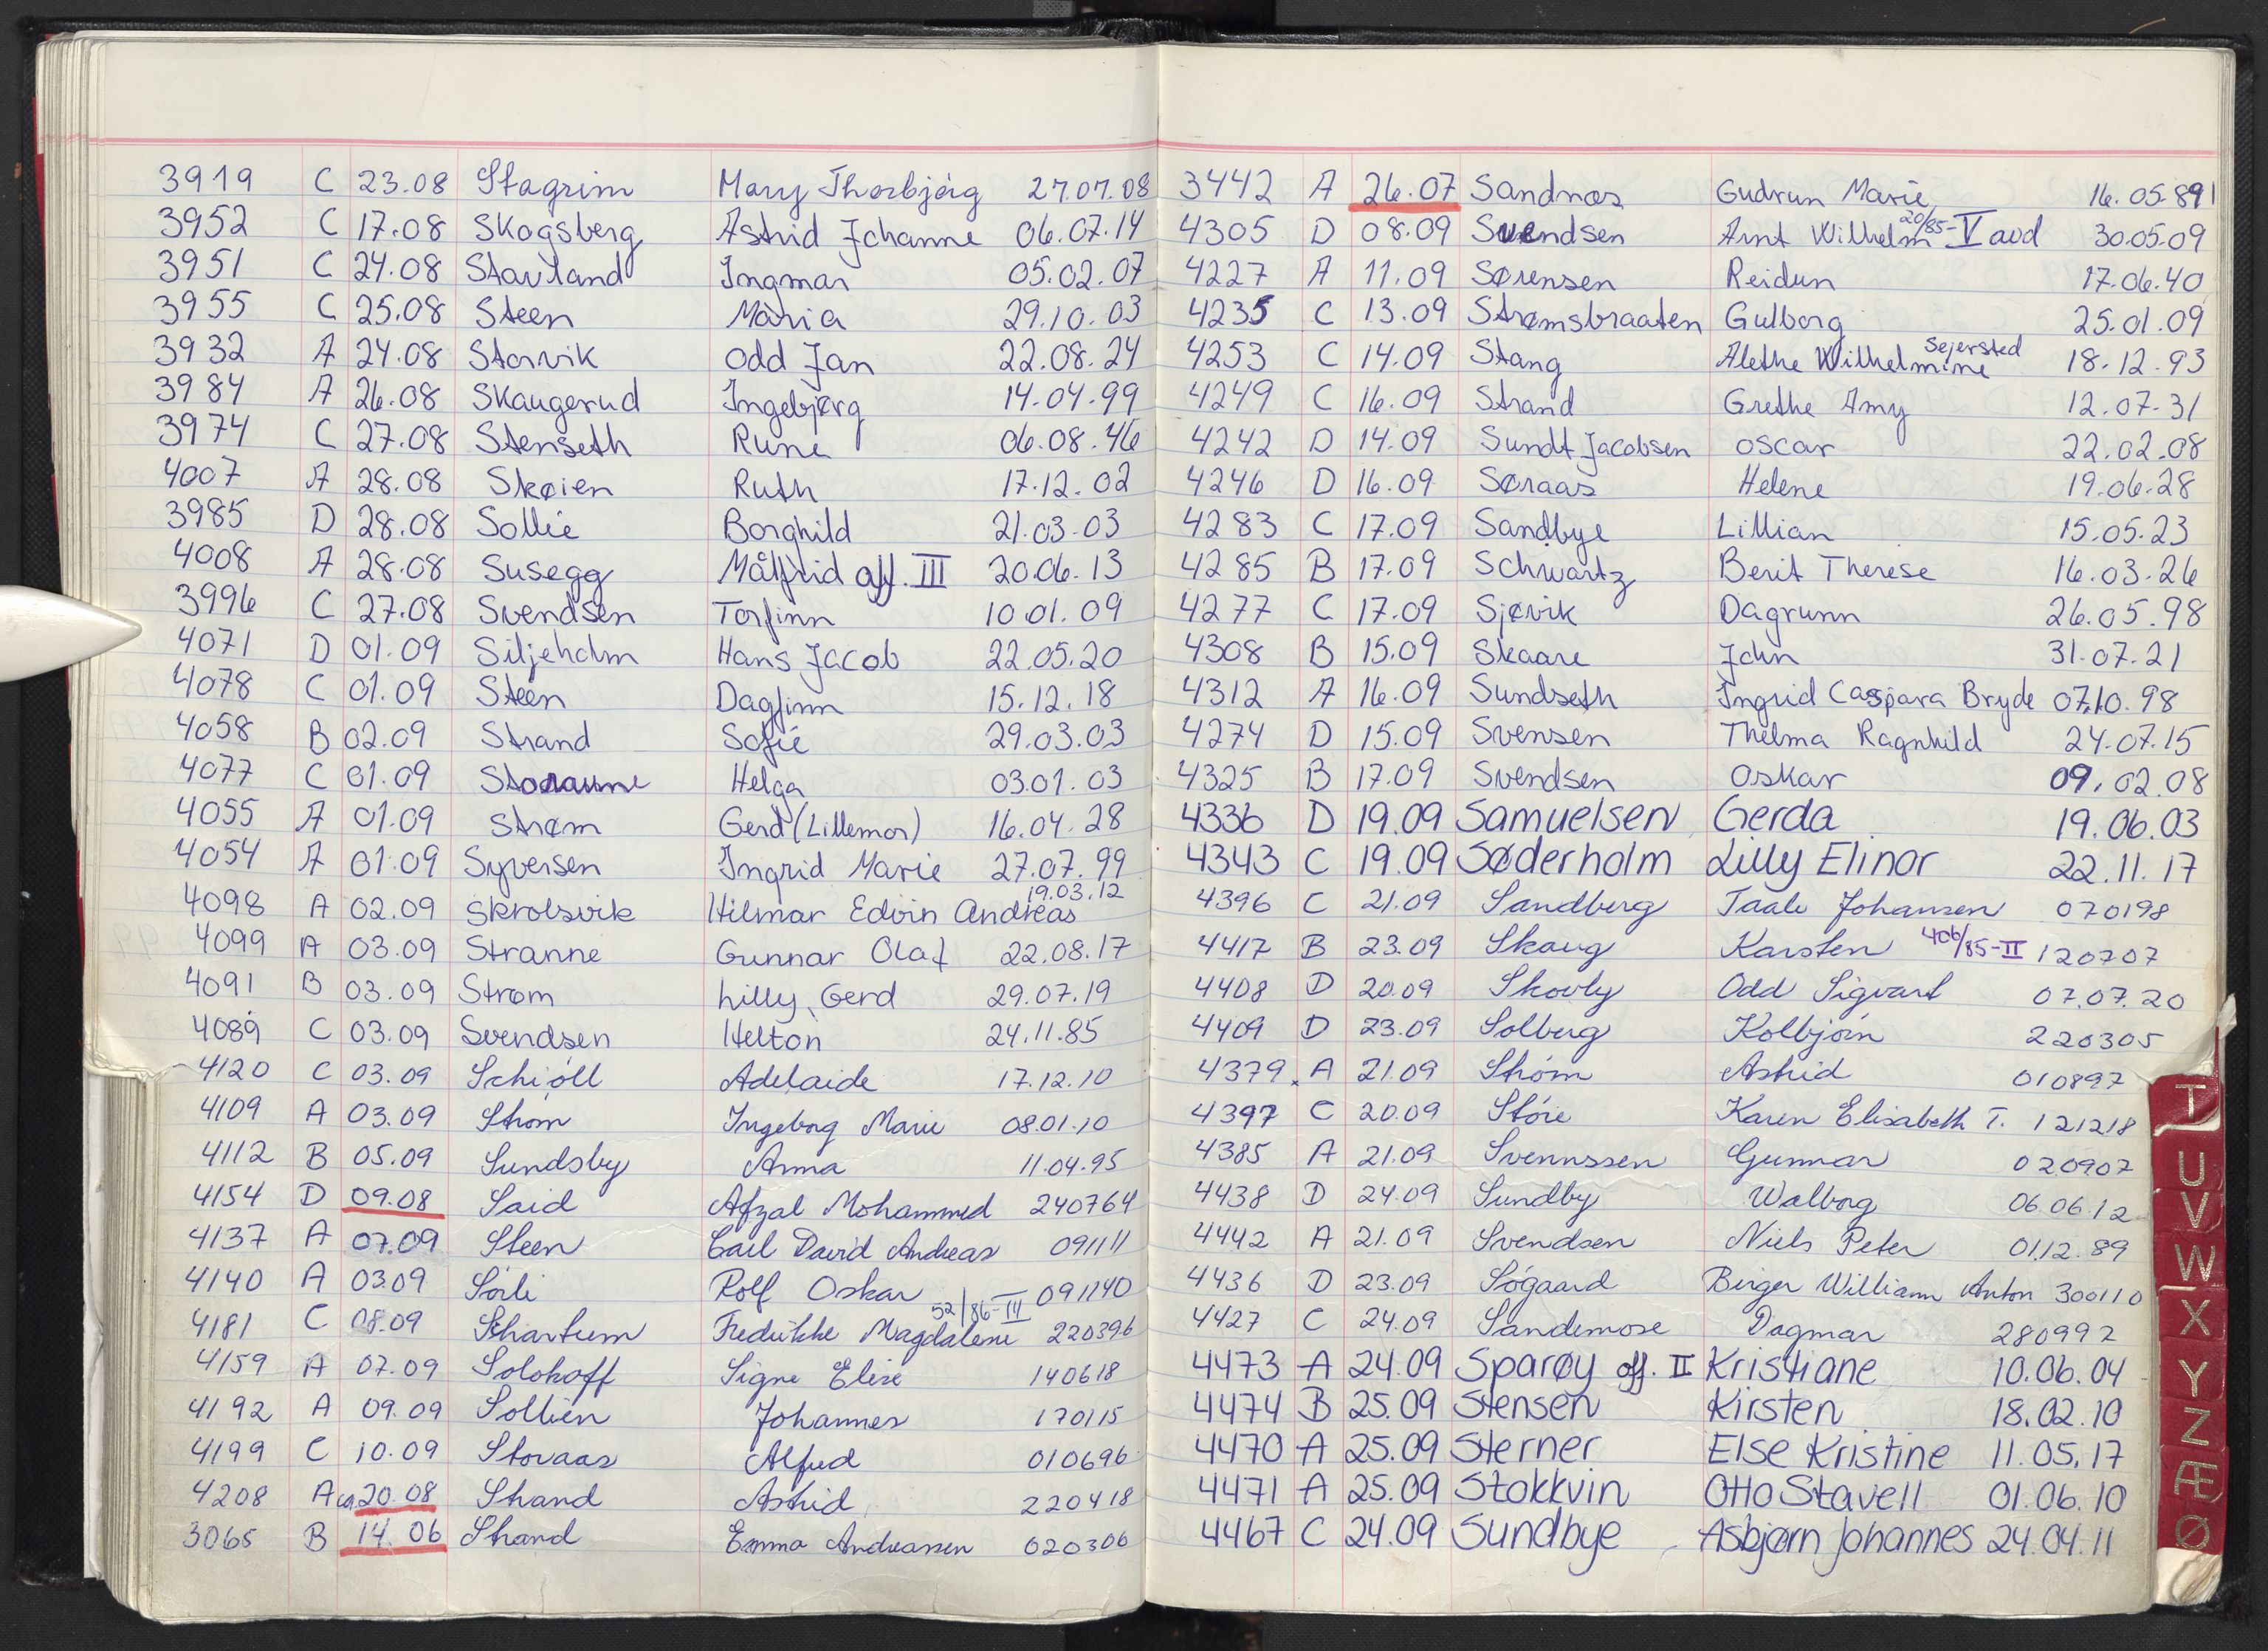 3919 C 23.08 Stagrim Mary Thorbjørg 27.07.08
3952 C 17.08 Skogsberg Astrid Johanne 06.07.14
3951 C 24.08 Stavland Ingmar 05.02.07
3955 C 25.08 Steen Maria 29.10.03
3932 A 24.08 Storvik Odd Jan 22.08.24
3984 A 26.08 Skaugerud Ingebjørg 14.04.99
3974 C 27.08 Stenseth Rune 06.08.46
4007 A 28.08 Skøien Ruth 17.12.02
3985 D 28.08 Sollie Borghild 21.03.03
4008 A 28.08 Susegg Målfrid off. III 20.06.13
3996 C 27.08 Svendsen Torfinn 10.01.09
4071 D 01.09 Siljeholm Hans Jacob 22.05.20
4078 C 01.09 Steen Dagfinn 15.12.18
4058 B 02.09 Strand Sofie 29.03.03
4077 C 01.09 Storaune Helga 03.01.03
4055 A 01.09 Strøm Gerd (Lillemor) 16.04.28
4054 A 01.09 Syversen Ingrid Marie 27.07.99
4098 A 02.09 Skrolsvik Hilmar Edvin Andreas 19.03.12
4099 A 03.09 Stranne Gunnar Olaf 22.08.17
4091 B 03.09 Strøm Lilly Gerd 29.07.19
4089 C 03.09 Svendsen Helton 24.11.85
4120 C 03.09 Schiøll Adelaide 17.12.10
4109 A 03.09 Strøm Ingeborg Marie 08.01.10
4112 B 05.09 Sundsby Anna 11.04.95
4154 D 09.08 Said Afzal Mohammed 240764
4137 A 07.09 Steen Carl David Andreas 091111
4140 A 03.09 Sørli Rolf Oskar 091140
4181 C 08.09 Schartum Fredrikke Magdalene 52/86-III 220396
4159 A 07.09 Solohoff Signe Elise 140618
4192 A 09.09 Sollien Johannes 170115
4199 C 10.09 Storaas Alfred 010696
4208 A ca. 20.08 Strand Astrid 220418
3065 B 14.06 Strand Emma Andreassen 020306
3442 A 26.07 Sandnæs Gudrun Marie 16.05.891
4305 D 08.09 Svendsen Arnt Wilhelm 20/85-V avd 30.05.09
4227 A 11.09 Sørensen Reidun 17.06.40
4235 C 13.09 Strømsbraaten Gulborg 25.01.09
4253 C 14.09 Stang Alethe Wilhelmine Sejersted 18.12.93
4249 C 16.09 Strand Grethe Amy 12.07.31
4242 D 14.09 Sundt Jacobsen Oscar 22.02.08
4246 D 16.09 Søraas Helene 19.06.28
4283 C 17.09 Sandbye Lillian 15.05.23
4285 B 17.09 Schwartz Berit Therese 16.03.26
4277 C 17.09 Sjøvik Dagrunn 26.05.98
4308 B 15.09 Skaare John 31.07.21
4312 A 16.09 Sundseth Ingrid Caspara Bryde 07.10.98
4274 D 15.09 Svensen Thelma Ragnhild 24.07.15
4325 B 17.09 Svendsen Oskar 09.02.08
4336 D 19.09 Samuelsen Gerda 19.06.03
4343 C 19.09 Søderholm Lilly Elinor 22.11.17
4396 C 21.09 Sandberg Taale Johansen 070198
4417 B 23.09 Skaug Karsten 406/85-II 120707
4408 D 20.09 Skovly Odd Sigvart 07.07.20
4409 D 23.09 Solberg Kolbjørn 220305
4379 A 21.09 Strøm Astrid 010897
4397 C 20.09 Støre Karen Elisabeth T. 121218
4385 A 21.09 Svennssen Gunnar 020907
4438 D 24.09 Sundby Walborg 06.06.12
4442 A 21.09 Svendsen Niels Peter 01.12.89
4436 D 23.09 Søgaard Birger William Anton 300110
4427 C 24.09 Sandemose Dagmar 280992
4473 A 24.09 Sparøy off. II Kristiane 10.06.04
4474 B 25.09 Stensen Kirsten 18.02.10
4470 A 25.09 Sterner Else Kristine 11.05.17
4471 A 25.09 Stokkvin Otto Stavell 01.06.10
4467 C 24.09 Sundbye Asbjørn Johannes 24.04.11
T
U
V
W
X
Y
Z
Æ
Ø